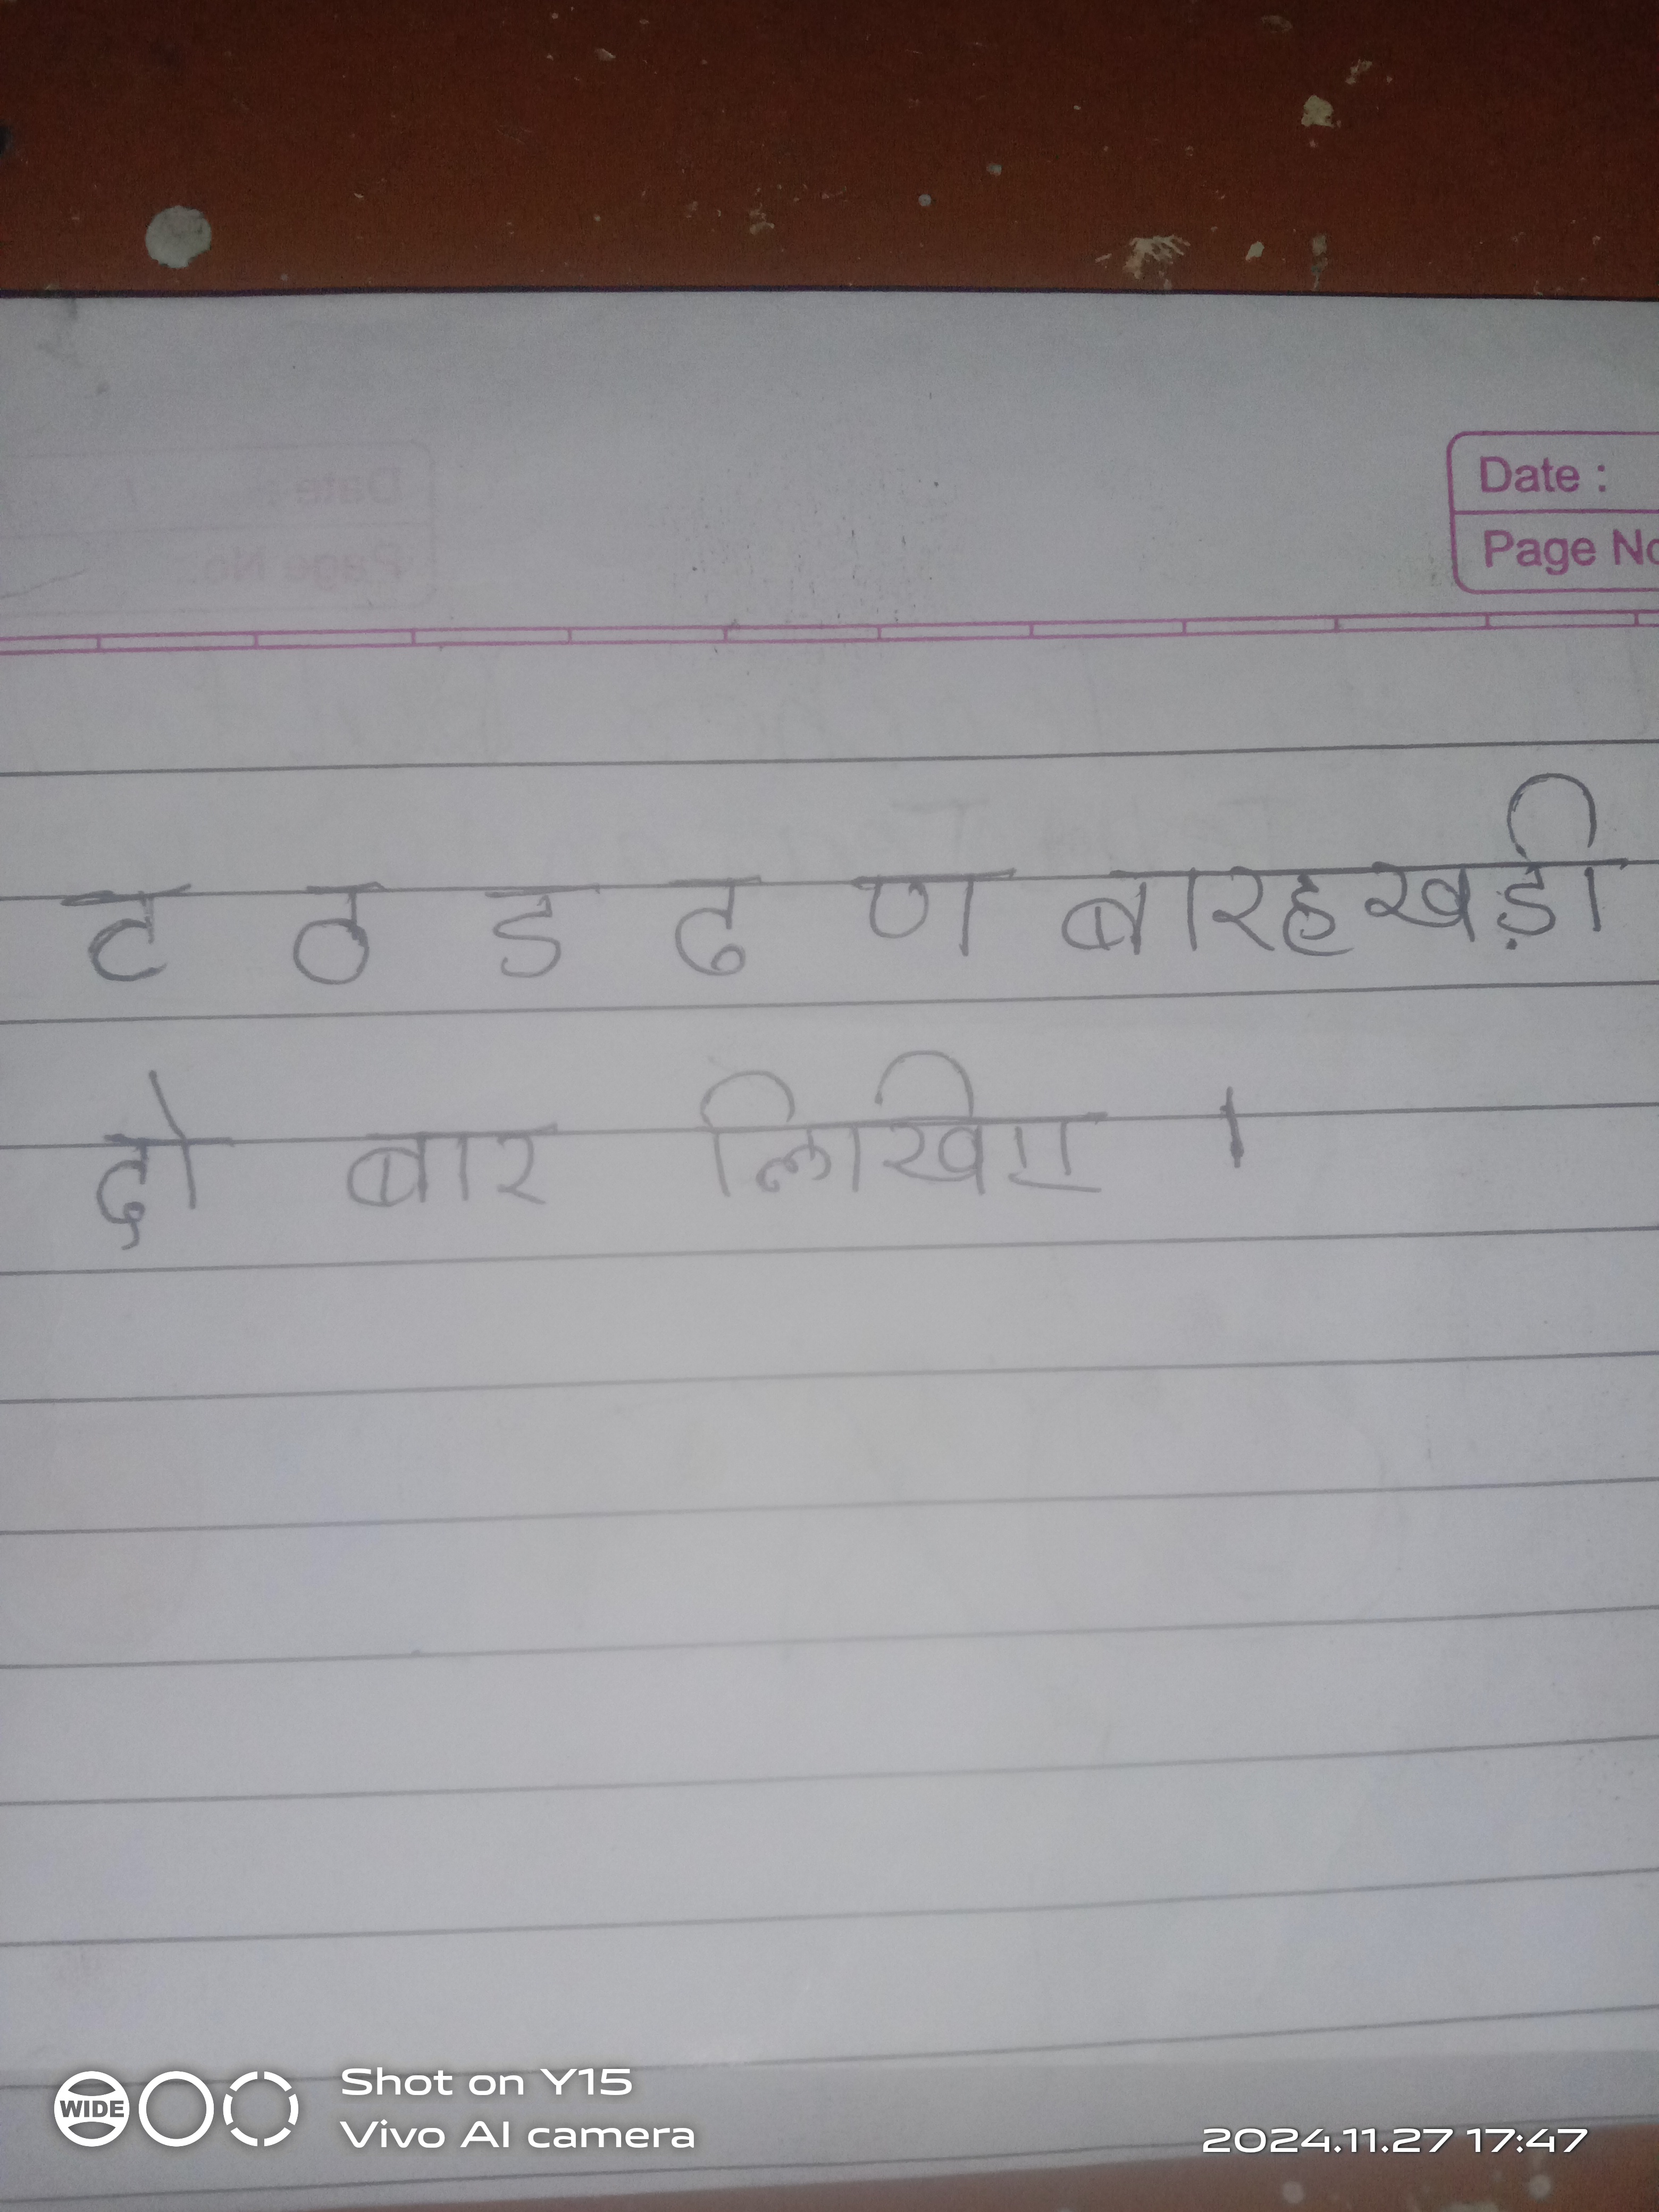 Date :
Page No
ट ठ ड ढ ण बारहखड़ी
दो बार लिखिए ।
WIDE
Shot on Y15
Vivo AI camera
2024.11.27 17:47